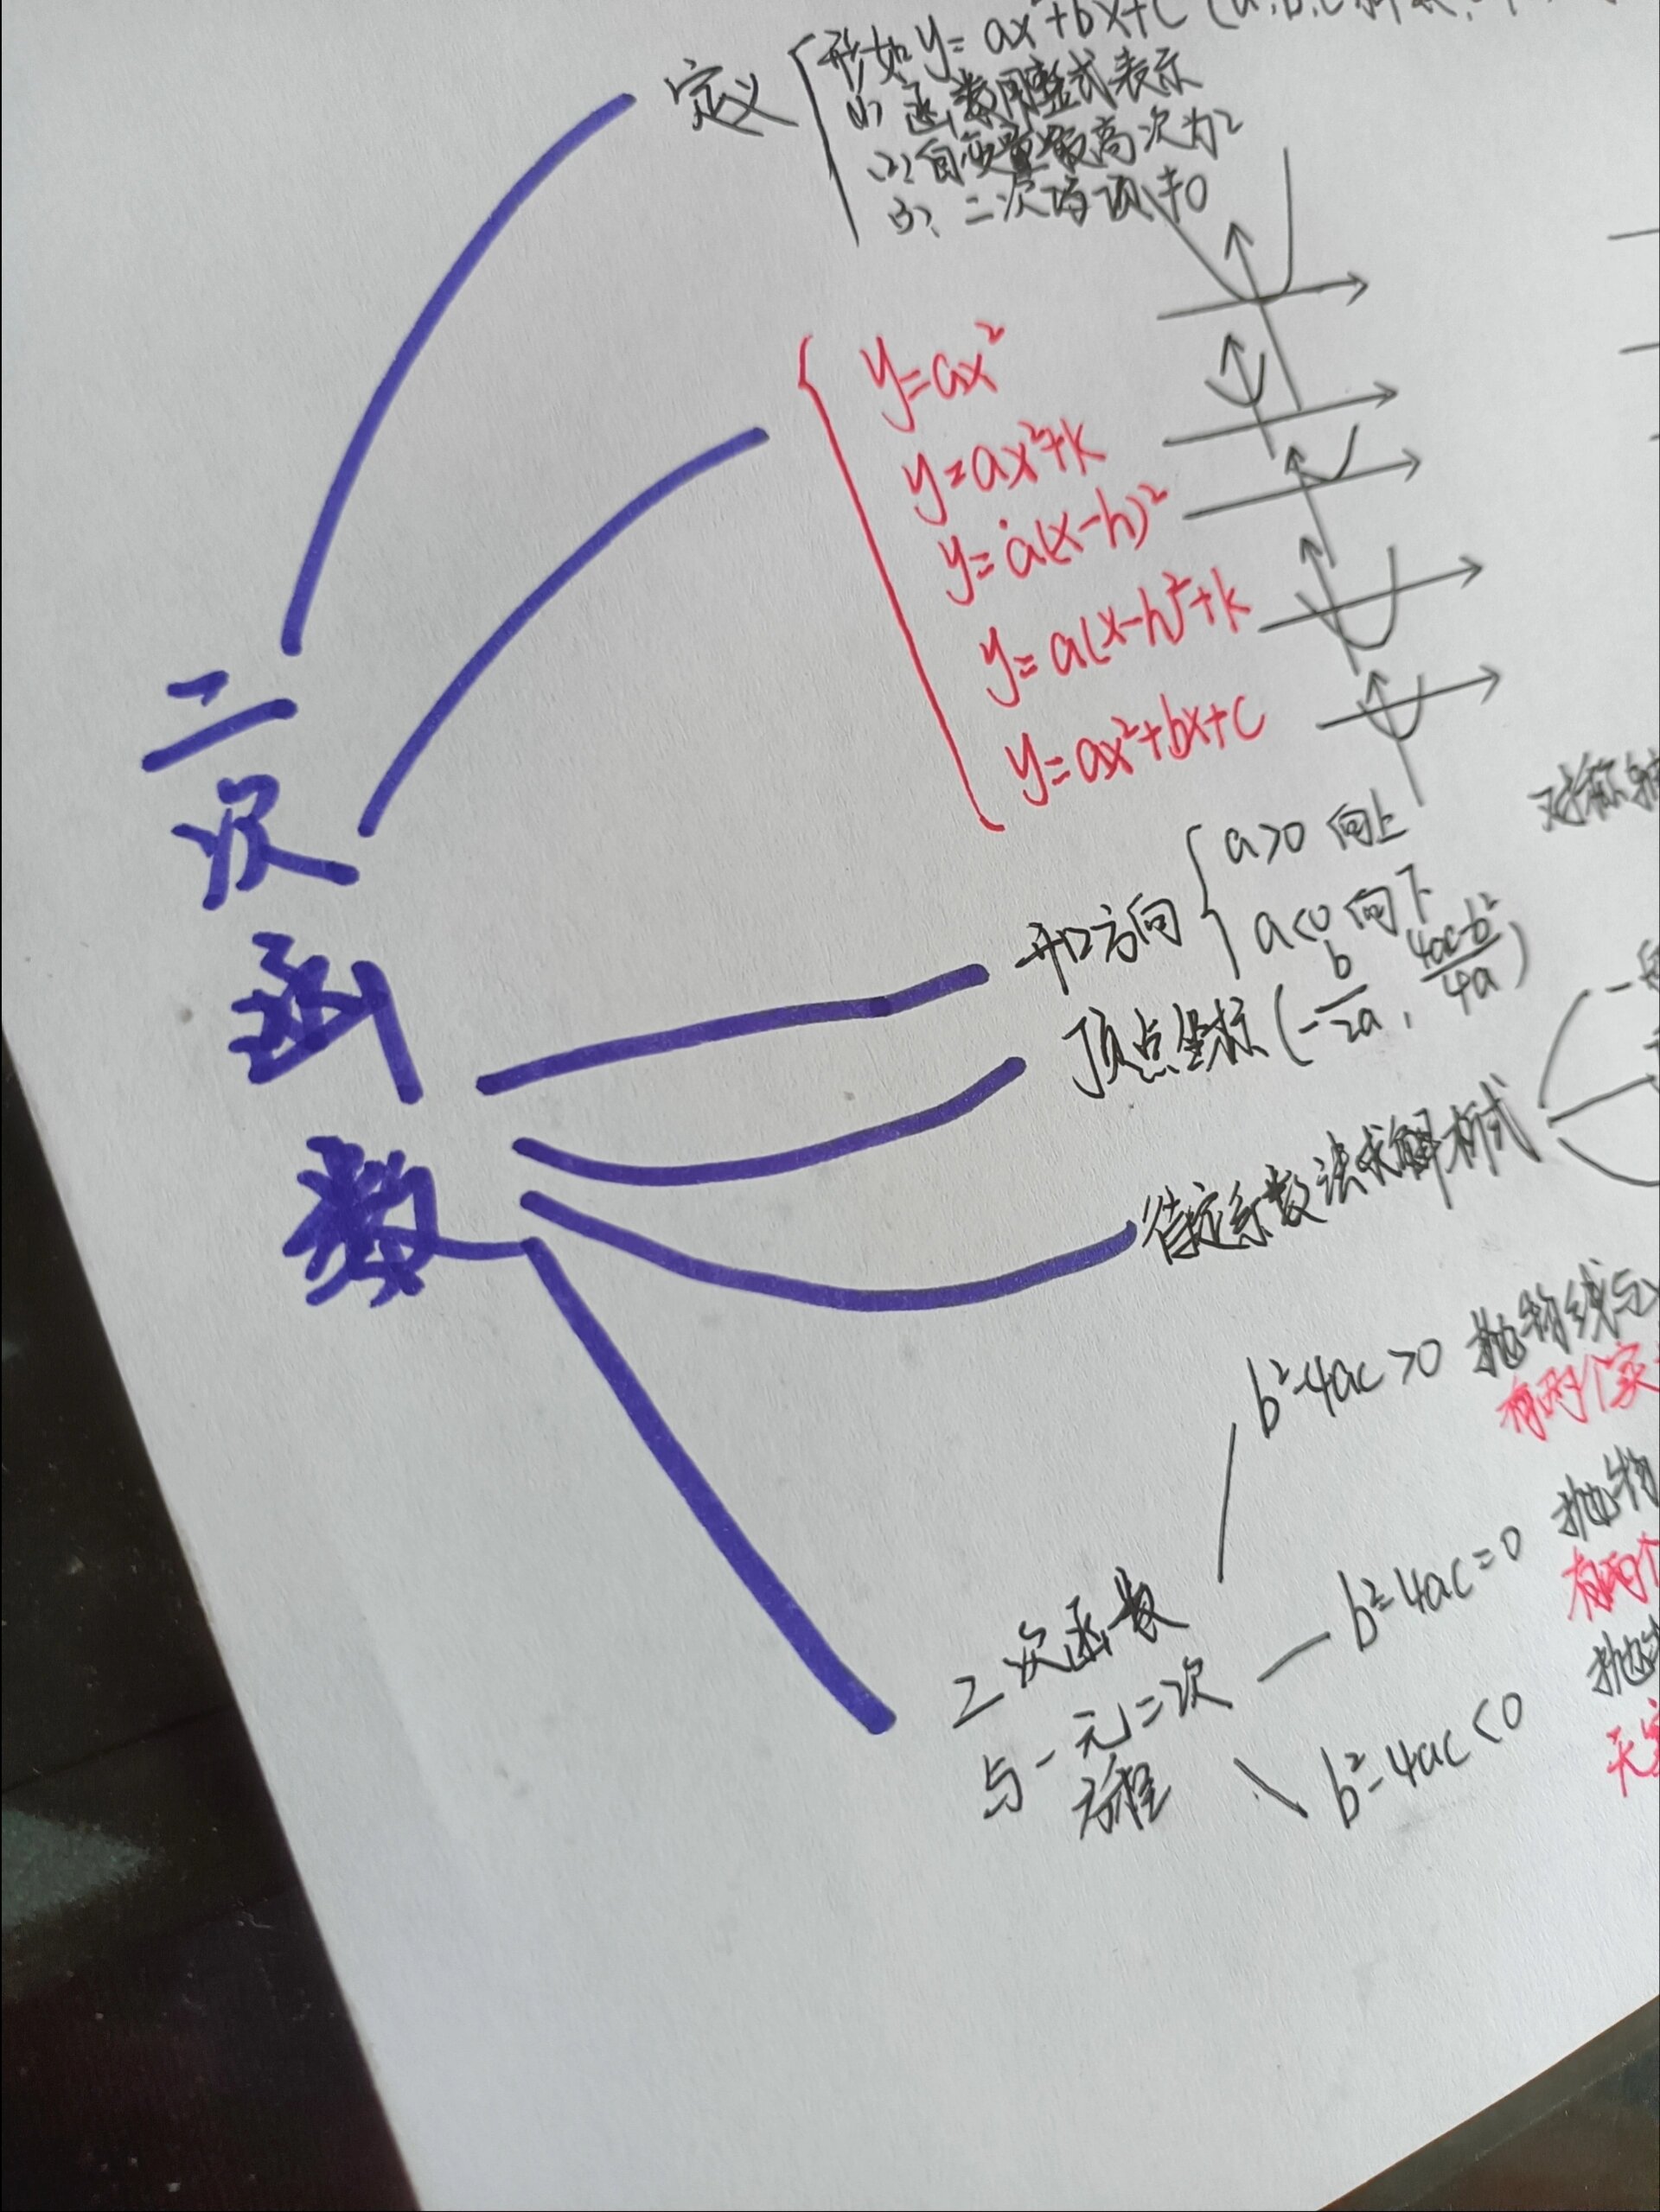 二次函数
定义
形如y=ax²+bx+c(a,b,c
(1) 函数用整式表示
(2) 自变量最高次为2
(3) 二次项≠0
y=ax²
y=ax²+k
y=a(x-h)²
y=a(x-h)²+k
y=ax²+bx+c
对称轴
开口方向
a>0 向上
a<0 向下
顶点坐标(-b/2a, 4ac-b²/4a)
待定系数法求解析式
一般
二次函数
与一元二次
方程
b²-4ac>0 抛物线与
有两个实
b²-4ac=0 抛物
有两个
b²-4ac<0 抛
无实